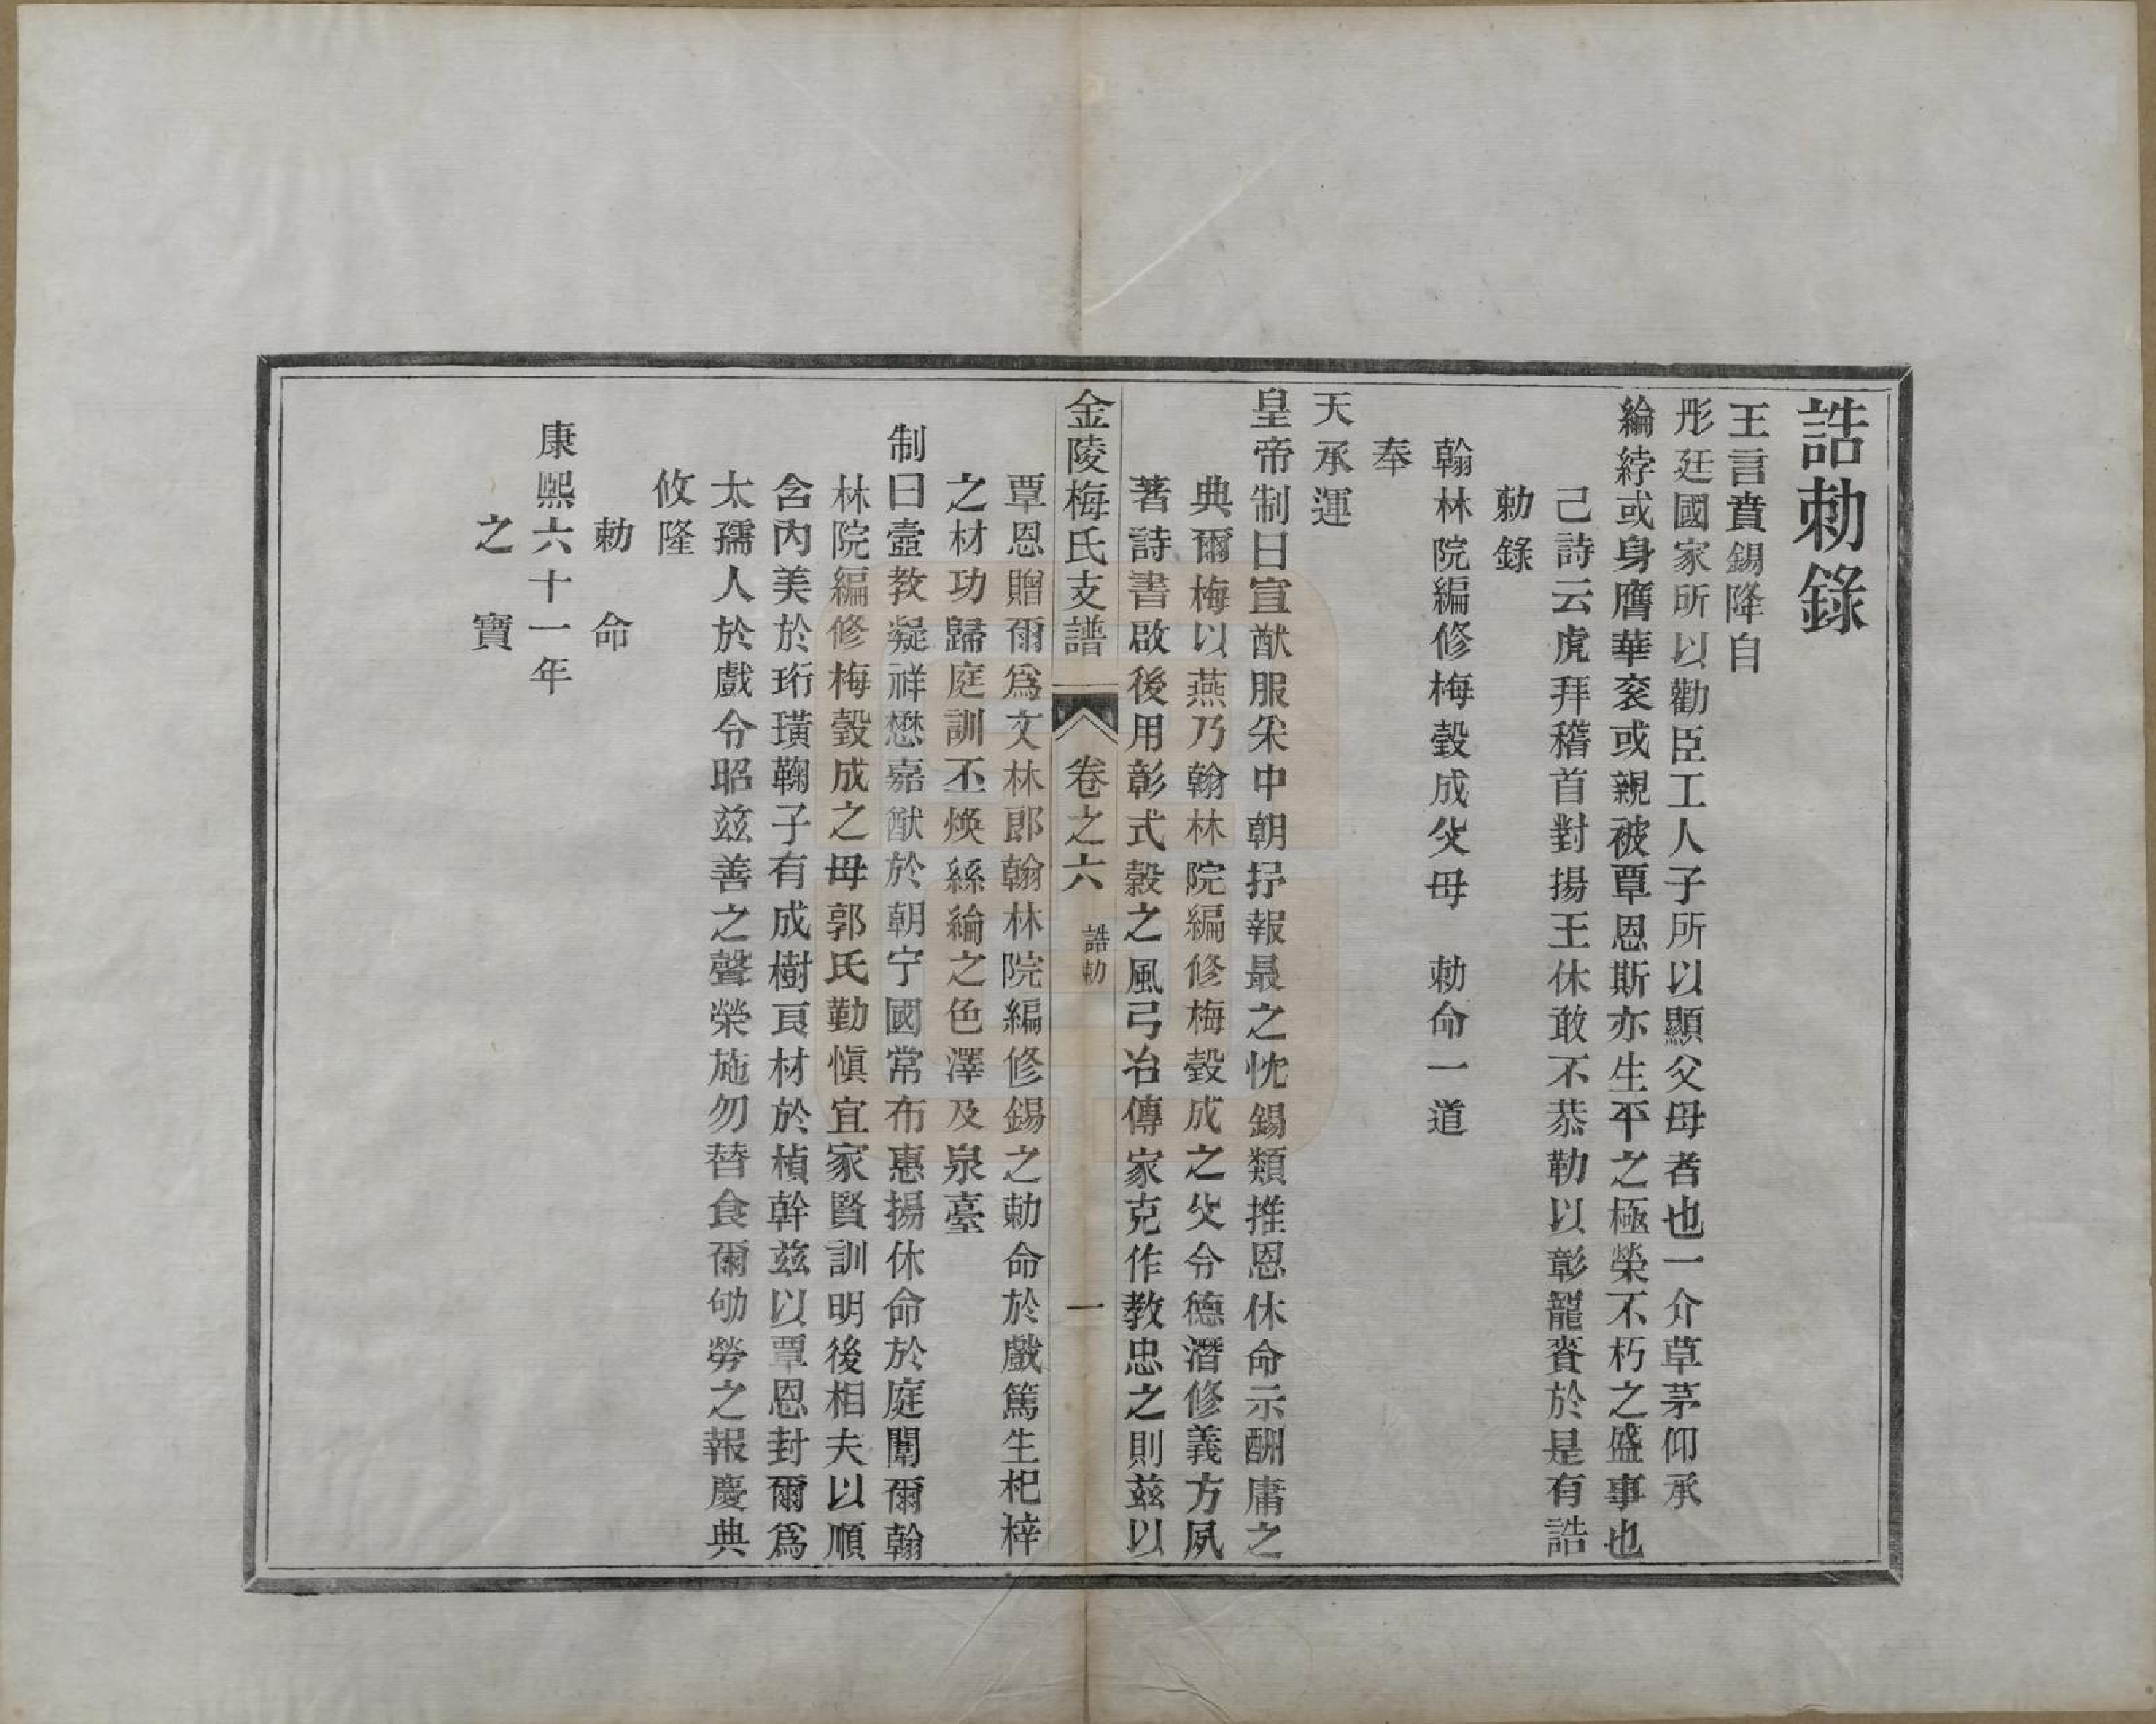 誥勅錄
王言賁錫降自
彤廷國家所以勸臣工人子所以顯父母者也一介草茅仰承
綸綍或身膺華衮或親被覃恩斯亦生平之極榮不朽之盛事也
己詩云虎拜稽首對揚王休敢不恭勒以彰寵賚於是有誥
勅錄
翰林院編修梅瑴成父母　勅命一道
奉
天承運
皇帝制曰宣猷服寀中朝抒報最之忱錫類推恩休命示酬庸之
典爾梅以燕乃翰林院編修梅瑴成之父令德潛修義方夙
著詩書啟後用彰式穀之風弓冶傳家克作教忠之則茲以
金陵梅氏支譜　卷之六　誥勅　一
覃恩贈爾爲文林郎翰林院編修錫之勅命於戲篤生杞梓
之材功歸庭訓丕煥絲綸之色澤及泉臺
制曰壼教凝祥懋嘉猷於朝宁國常布惠揚休命於庭闈爾翰
林院編修梅瑴成之母郭氏勤慎宜家賢訓明後相夫以順
含內美於珩璜鞠子有成樹良材於楨幹茲以覃恩封爾爲
太孺人於戲令昭茲善之聲榮施勿替食爾劬勞之報慶典
攸隆
勅　命
康熙六十一年
之　寶